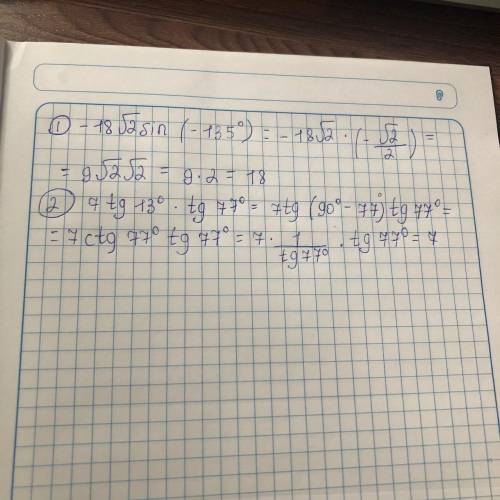 ① -18√2 sin (-135°) = -18√2 · (-√2/2) =
= 9√2√2 = 9·2 = 18
② 7 tg 13° · tg 77° = 7tg (90° - 77°) tg 77° =
= 7 ctg 77° tg 77° = 7 · 1/tg 77° · tg 77° = 7